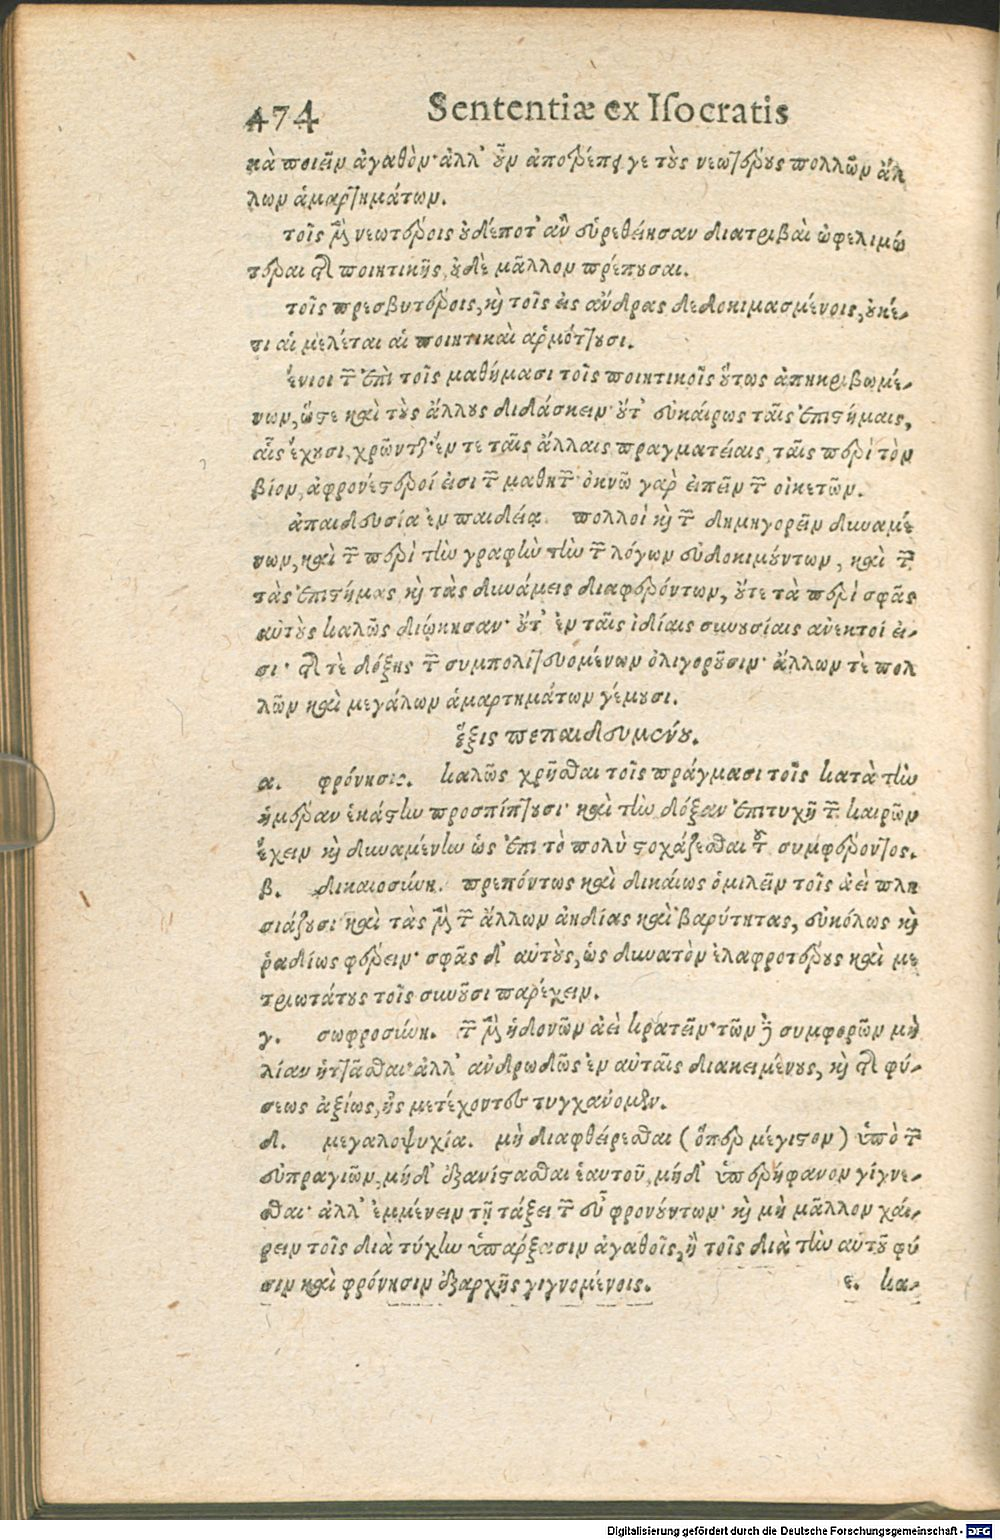 474 Sententiæ ex Iſocratis
κὰ ποιεῖν ἀγαθὸν· ἀλλ’ οὖν ἀποτρέπει γε τοὺς νεωτέρους πολλῶν ἄλ
λων ἁμαρτημάτων.
τοῖς μὲν νεωτέροις οὐδέποτ’ ἂν εὑρεθείησαν διατριβαὶ ὠφελιμώ
τεραι τῆς ποιητικῆς, οὐδὲ μᾶλλον πρέπουσαι.
τοῖς πρεσβυτέροις, καὶ τοῖς εἰς ἄνδρας δεδοκιμασμένοις, οὐκέ-
τι αἱ μελέται αἱ ποιητικαὶ ἁρμόττουσι.
ἔνιοι τῶν ἐπὶ τοῖς μαθήμασι τοῖς ποιητικοῖς οὕτως ἀπηκριβωμέ-
νων, ὥστε καὶ τοὺς ἄλλους διδάσκειν· οὔτ’ εὐκαίρως ταῖς ἐπιστήμαις,
αἷς ἔχουσι, χρῶνται· ἔν τε ταῖς ἄλλαις πραγματείαις, ταῖς περὶ τὸν
βίον, ἀφρονέστεροί εἰσι τῶν μαθητῶν· ὀκνῶ γὰρ εἰπεῖν τῶν οἰκετῶν.
ἀπαιδευσία ἐν παιδείᾳ. πολλοὶ καὶ τῶν δημηγορεῖν δυναμέ
νων, καὶ τῶν περὶ τὴν γραφὴν τὴν τῶν λόγων εὐδοκιμούντων, καὶ τῶν
τὰς ἐπιστήμας καὶ τὰς δυνάμεις διαφερόντων, οὔτε τὰ περὶ σφᾶς
αὐτοὺς καλῶς διῴκησαν· οὔτ’ ἐν ταῖς ἰδίαις συνουσίαις ἀνεκτοί εἰ-
σι· τῆς τὲ δόξης τῶν συμπολιτευομένων ὀλιγοροῦσιν· ἄλλων τὲ πολ
λῶν καὶ μεγάλων ἁμαρτημάτων γέμουσι.
ἕξις πεπαιδευμένου.
α. φρόνησις. καλῶς χρῆσθαι τοῖς πράγμασι τοῖς κατὰ τὴν
ἡμέραν ἑκάστην προσπίπτουσι· καὶ τὴν δόξαν ἐπιτυχῆ τῶν καιρῶν
ἔχειν καὶ δυναμένην ὡς ἐπὶ τὸ πολὺ στοχάζεσθαι τοῦ συμφέροντος.
β. δικαιοσύνη. πρεπόντως καὶ δικαίως ὁμιλεῖν τοῖς ἀεὶ πλη
σιάζουσι· καὶ τὰς μὲν τῶν ἄλλων ἀηδίας καὶ βαρύτητας, εὐκόλως καὶ
ῥᾳδίως φέρειν· σφᾶς δ’ αὐτοὺς, ὡς δυνατὸν ἐλαφροτέρους καὶ με
τριωτάτους τοῖς συνοῦσι παρέχειν.
γ. σωφροσύνη. τῶν μὲν ἡδονῶν ἀεὶ κρατεῖν· τῶν δὲ συμφορῶν μὴ
λίαν ἡττᾶσθαι· ἀλλ’ ἀνδρωδῶς ἐν αὐταῖς διακειμένους, καὶ τῆς φύ-
σεως ἀξίως, ἧς μετέχοντες τυγχάνομεν.
δ. μεγαλοψυχία. μὴ διαφθείρεσθαι (ὅπερ μέγιστον) ὑπὸ τῶν
εὐπραγιῶν, μήδ’ ἐξανίστασθαι ἑαυτοῦ, μήδ’ ὑπερήφανον γίγνε-
σθαι· ἀλλ’ ἐμμένειν τῇ τάξει τῶν εὖ φρονούντων· καὶ μὴ μᾶλλον χαί-
ρειν τοῖς διὰ τύχην ὑπάρξασιν ἀγαθοῖς, ἢ τοῖς διὰ τὴν αὐτοῦ φύ
σιν καὶ φρόνησιν ἐξαρχῆς γιγνομένοις. ε. κα-
Digitalisierung gefördert durch die Deutsche Forschungsgemeinschaft - DFG